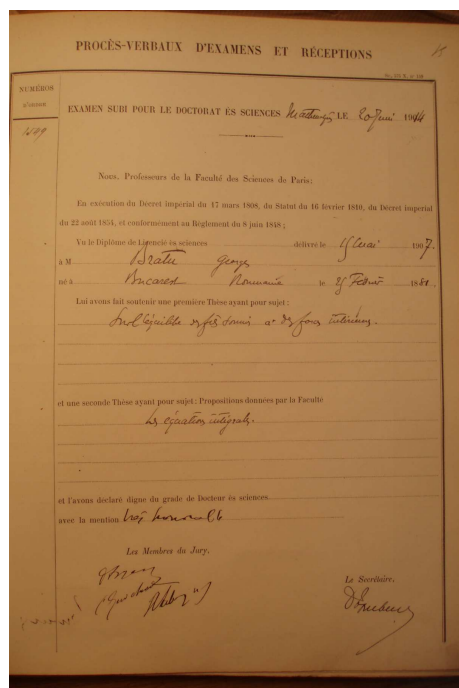 PROCÈS-VERBAUX D'EXAMENS ET RÉCEPTIONS
NUMÉROS
EXAMEN SUBI POUR LE DOCTORAT ÈS SCIENCES LE 20 Juin 1914
Nous, Professeurs de la Faculté des Sciences de Paris:
En exécution du Décret impérial du 17 mars 1808, du Statut du 16 février 1810, du Décret impérial
du 22 août 1854, et conformément au Règlement du 8 juin 1848;
Vu le Diplôme de Licencié ès sciences délivré le 15 mai 1907.
à M Bratu Georges
né à Bucarest Roumanie le 1881
Lui avons fait soutenir une première Thèse ayant pour sujet:
Sur l'équilibre des fils soumis à des forces intérieures.
et une seconde Thèse ayant pour sujet: Propositions données par la Faculté
Les équations intégrales.
et l'avons déclaré digne du grade de Docteur ès sciences
avec la mention très honorable
Les Membres du Jury,
Le Secrétaire,